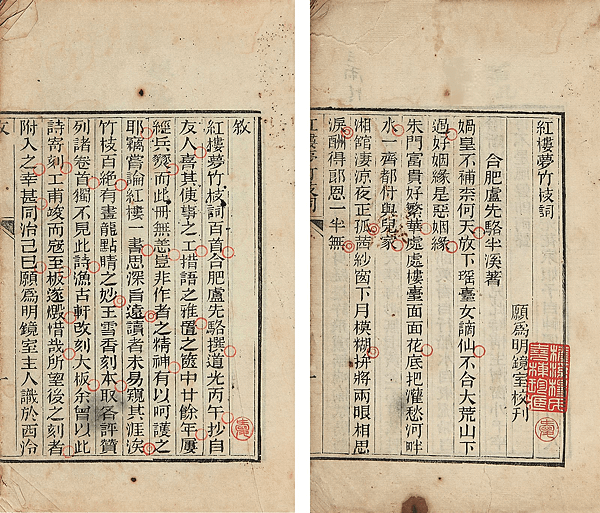 紅樓夢竹枝詞
願為明鏡室校刊
合肥盧先駱半溪著
媧皇不補奈何天放下瑤臺女謫仙不合大荒山下
過好姻緣是惡姻緣
朱門富貴好繁華處處樓臺面面花底把灌愁河畔
水一齊都付與兒家
湘館淒涼夜正孤茜紗窗下月模糊拚將兩眼相思
淚酬得郎恩一半無
紅樓夢竹枝詞
敘
紅樓夢竹枝詞百首合肥盧先駱撰道光丙午抄自
友人喜其使事之工措語之雅置之篋中廿餘年屢
經兵燹而此冊無恙豈非作者之精神有以呵護之
耶竊嘗論紅樓一書思深旨遠讀者未易窺其涯涘
竹枝百絕有畫龍點睛之妙王雪香刻本取各評贊
列諸卷首獨不見此詩漁古軒改刻大板余曾以此
詩寄刻工甫峻而寇至板遂燬惜哉所望後之刻者
附入之幸甚同治己巳願為明鏡室主人識於西泠